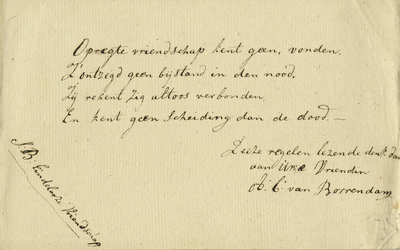 Opregte vriendschap kent geen, vonden,
Z'ontzegd geen bijstand in den nood,
Zij rekent zig altoos verbonden,
En kent geen scheiding dan de dood. —
Deeze regelen lezende denk dan
aan Uwe Vriendin
A: C: van Borrendam
S. B. Eindelooze Vriendschap